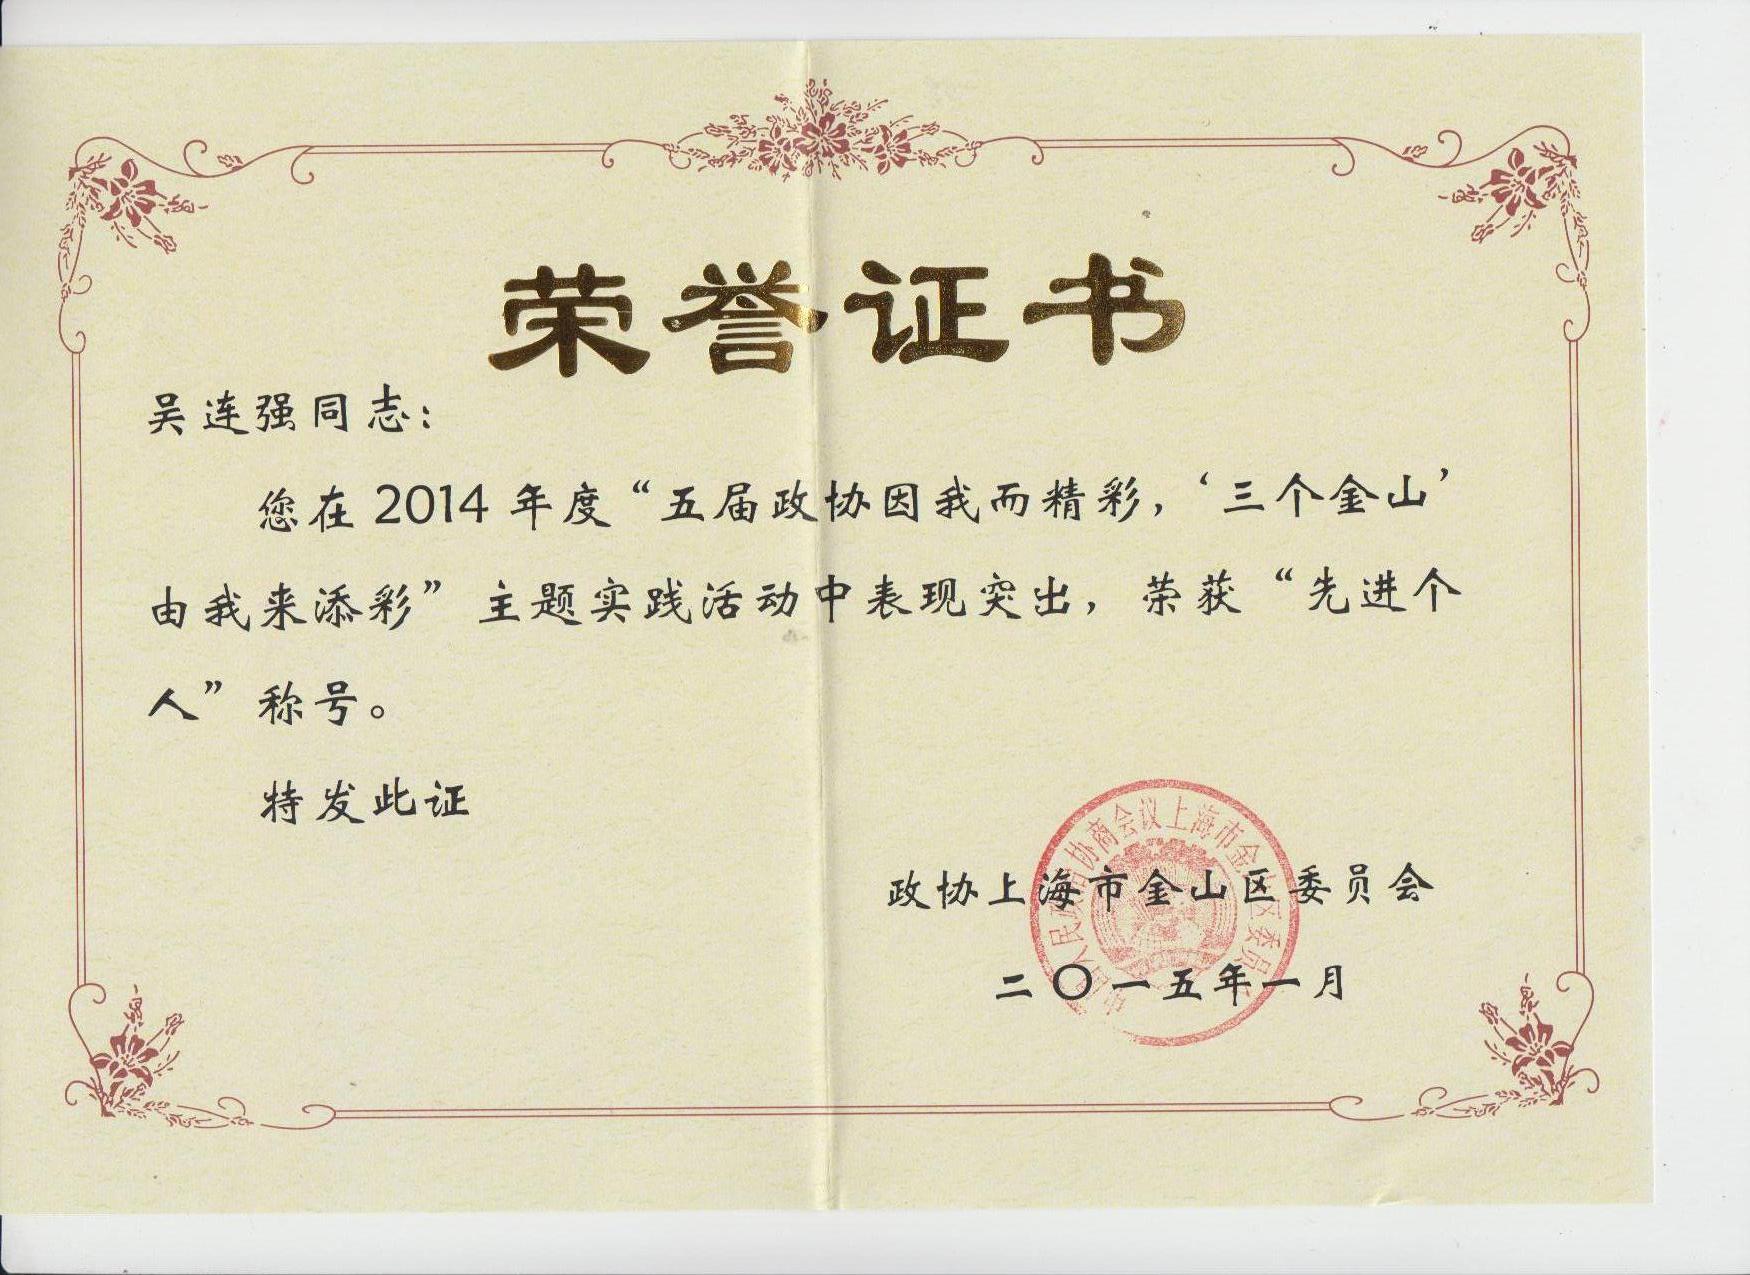 荣誉证书
吴连强同志：
您在 2014 年度“五届政协因我而精彩，‘三个金山’
由我来添彩”主题实践活动中表现突出，荣获“先进个
人”称号。
特发此证
政协上海市金山区委员会
二〇一五年一月
中国人民政治协商会议上海市金山区委员会